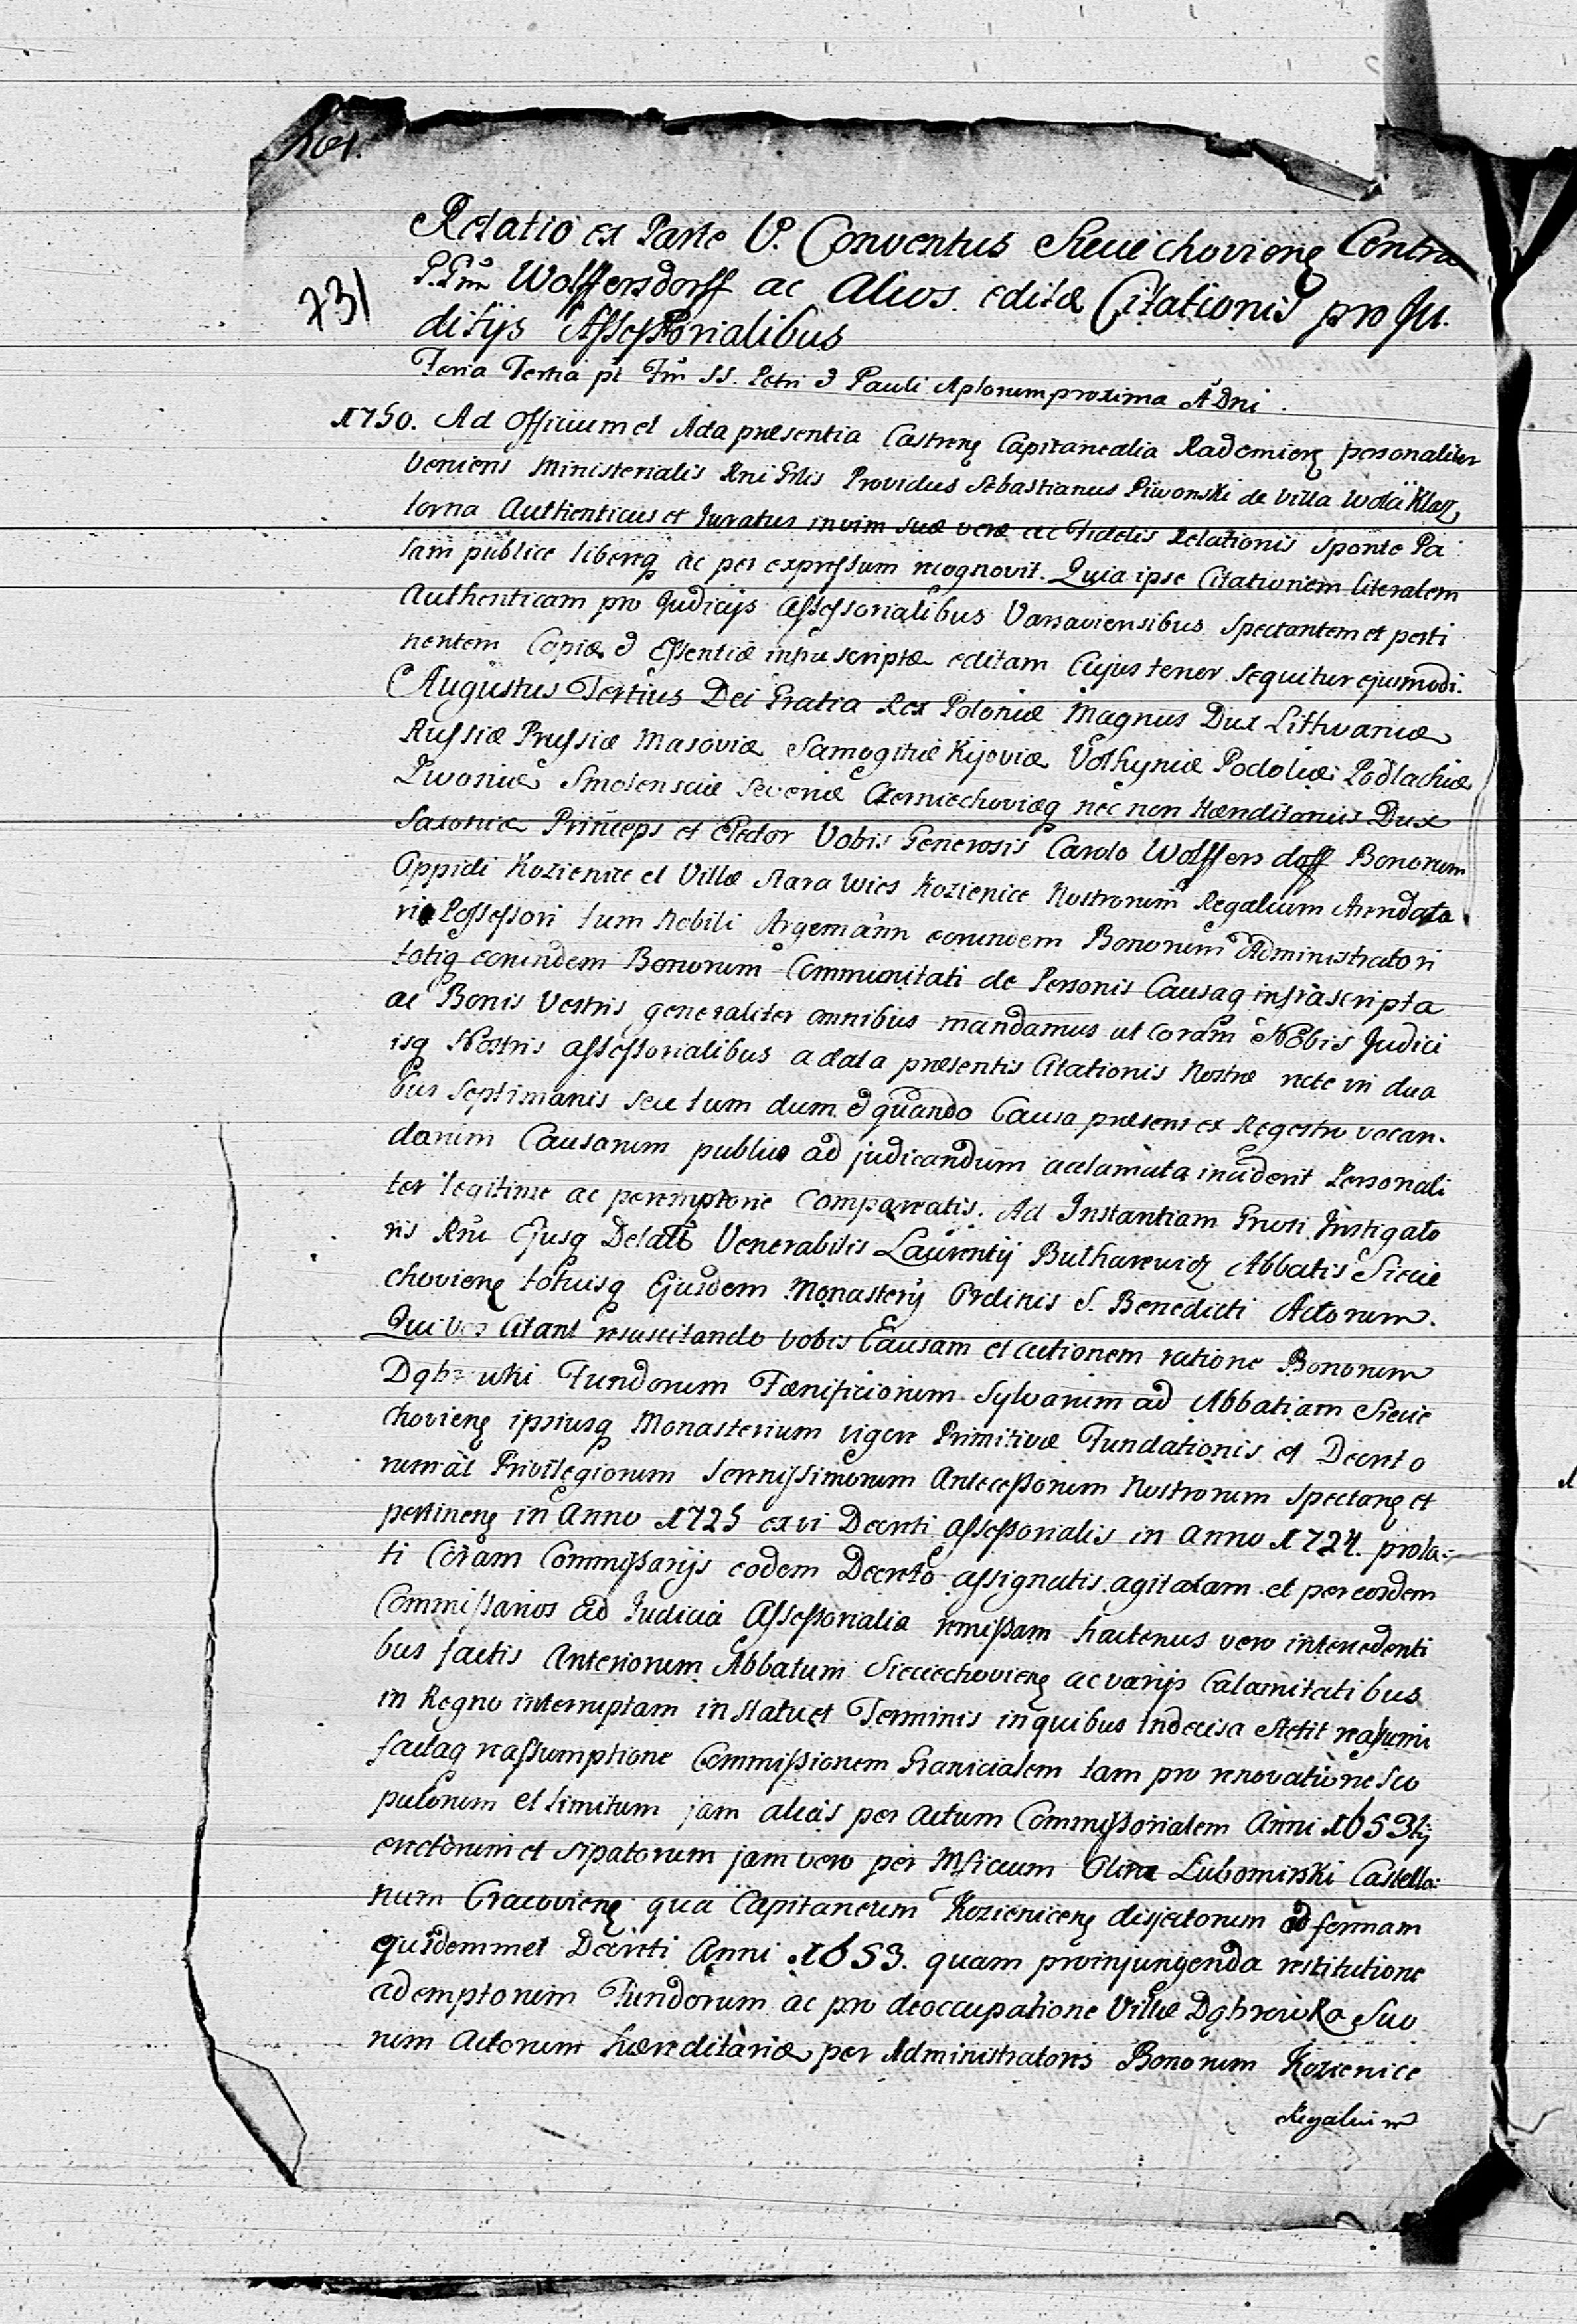 Relatio ex Parte V. Conventus Sieciechovieng Contra
731
G. Gnm Wolffersdorff ac Alios editæ Citationis pro Ju.
ditijs Assessorialibus
Feria Tertia pt Fm SS. Petri & Pauli Aplorum proxima A Dni.
1750. Ad Officium et Acta præsentia Castreng Capitanealia Radomieng personaliter
veniens Ministerialis Rni Gnlis Providus Sebastianus Piwonski de Villa Wola Klasz
torna Authenticus et Juratus in vim suæ veræ ac Fidelis Relationis sponte Pa
lam publice libereq ac per expressum recognovit. Quia ipse Citationem literalem
Authenticam pro Judicijs Assessorialibus Varsaviensibus Spectantem et perti
nentem Copiæ & Essentiæ infra scriptæ editam Cujus tenor sequitur ejusmodi.
Augustus Tertius Dei Gratia Rex Poloniæ Magnus Dux Lithvaniæ
Russiæ Prussiæ Masoviæ Samogitiæ Kijoviæ Volhyniæ Podoliæ Podlachiæ
Livoniæ Smolensciæ Severiæ Czerniechoviæq nec non Hæreditarius Dux
Saxoniæ Princeps et Elector Vobis Generosis Carolo Wolffersdoff Bonorum
Oppidi Kozienice et Villæ Stara Wies Kozienice Nostrorum Regalium Arendato
rio Possessori tum Nobili Argemann eorundem Bonorum Administratori
totiq eorundem Bonorum Communitati de Personis Causaq infrascripta
ac Bonis Vestris generaliter omnibus mandamus ut Coram Nobis Judici
isq Nostris assessorialibus a data præsentis Citationis Nostræ recte in dua
bus septimanis seu tum dum & quando Causa præsens ex Regestro vocan.
darum Causarum publice ad judicandum acclamata inciderit Personali
ter legitime ac peremptorie Compareatis. Ad Instantiam Gnosi Instigato
ris Rni Ejusq Delatis Venerabilis Laurentij Bulharewicz Abbatis Siecie
chovieng totiusq Ejusdem Monasterij Ordinis S. Benedicti Actorum.
Qui vos Citant resuscitando vobis Causam et actionem ratione Bonorum
Dąbrowki Fundorum Fænificiorum Sylvarum ad Abbatiam Siecie
chovieng ipsiusq Monasterium vigore Primitivæ Fundationis et Decreto
rum ac Privilegiorum Serenissimorum Antecessorum Nostrorum spectang et
pertineng in Anno 1725 ex vi Decreti assessorialis in anno 1724. prola:
ti Coram Commissarijs eodem Decreto assignatis agitatam et per eosdem
Commissarios ad Judicia Assessorialia remissam hactenus vero intercedenti
bus factis Anteriorum Abbatum Sieciechovieng ac varijs Calamitatibus
in Regno interruptam in statu et Terminis in quibus indecisa stetit reassumi
factaq reassumptione Commissionem Granicialem tam pro renovatione Sco
pulorum et limitum jam alias per actum Commissorialem Anni 1653tij
erectorum et sipatorum jam vero per Mficum Olim Lubomirski Castella:
num Cracovieng qua Capitaneum Kozieniceng disjectorum ad formam
ejusdemmet Decreti Anni 1653. quam pro injungenda restitutione
ademptorum Fundorum ac pro deoccupatione Villæ Dąbrowka Suo
rum Actorum hæreditariæ per Administratores Bonorum Kozienice
Regalium